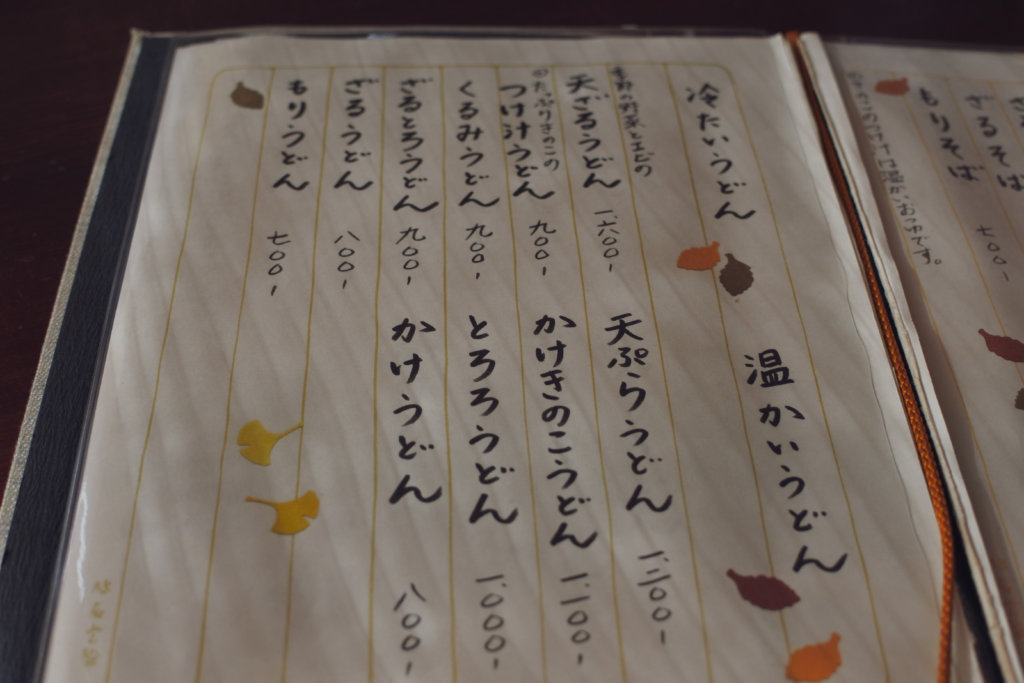 ざるそば
もりそば 七〇〇-
きのこのつけ汁は温かいおつゆです。
冷たいうどん
季節の野菜とエビの
天ざるうどん 一、六〇〇-
たっぷりきのこの
つけ汁うどん 九〇〇-
くるみうどん 九〇〇-
ざるとろうどん 九〇〇-
ざるうどん 八〇〇-
もりうどん 七〇〇-
温かいうどん
天ぷらうどん 一、二〇〇-
かけきのこうどん 一、一〇〇-
とろろうどん 一、〇〇〇-
かけうどん 八〇〇-